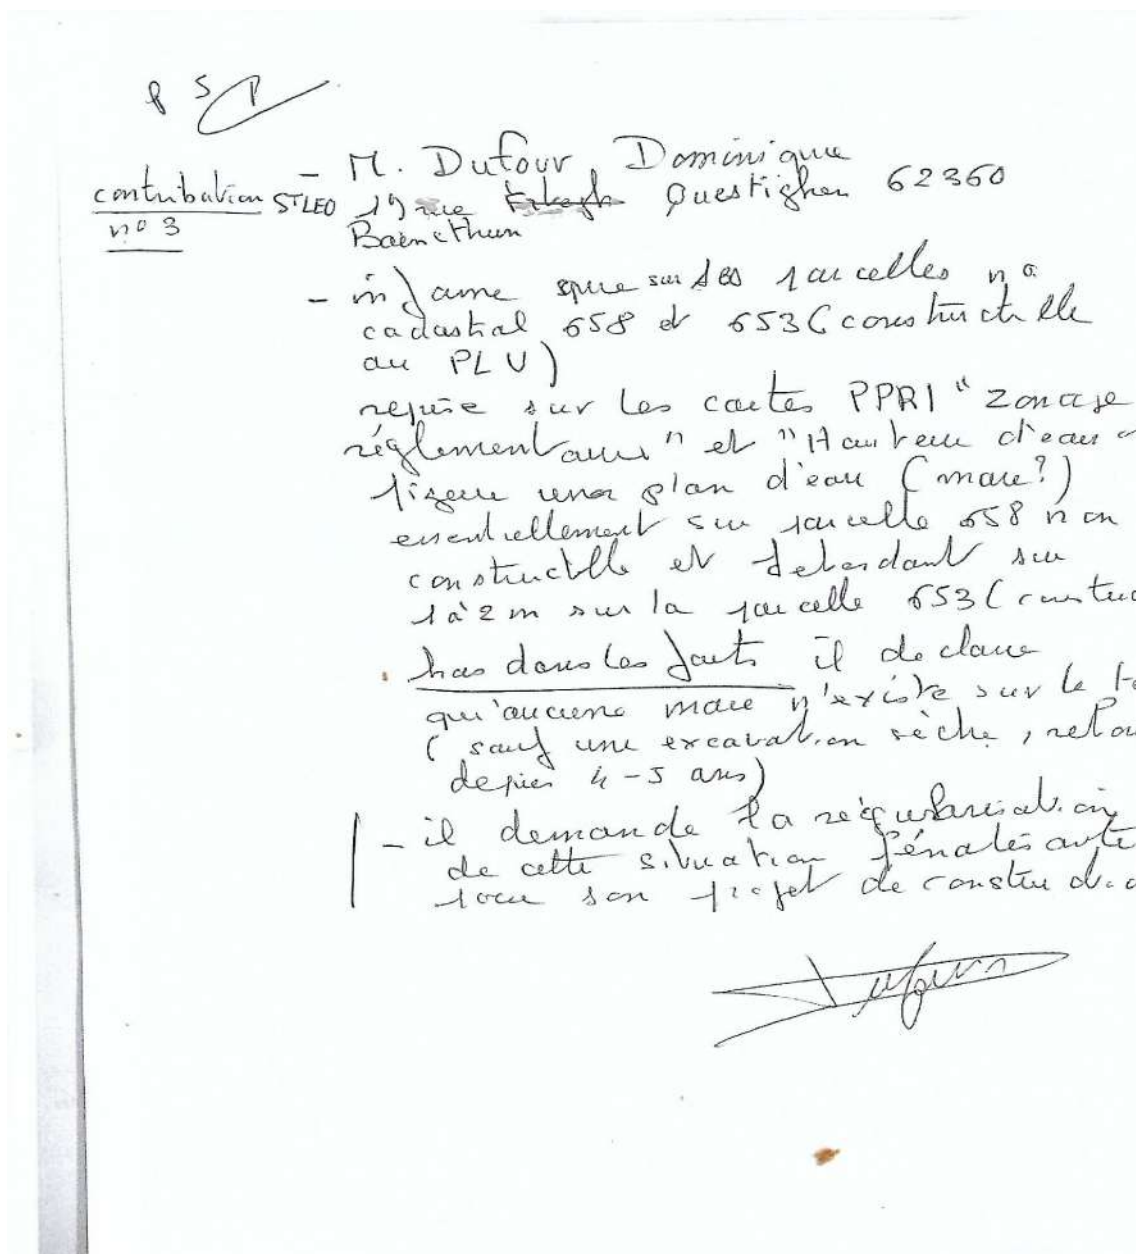 P 5
- M. Dufour Dominique
contribution ST LEO 19 rue Questighen 62360
n° 3 Baincthun
- informe que sur ses parcelles n°
cadastral 658 et 653 (constructible
au PLU)
sur les cartes PPRI "zonage
réglementaire" et "Hauteur d'eau
figure une plan d'eau (mare?)
essentiellement sur parcelle 658 non
constructible et sur
1 à 2 m sur la parcelle 653 (constru
dans les faits il declare
qu'aucune mare n'existe sur le
(sauf une excavation sèche,
depuis 4-5 ans)
- il demande la régularisation
de cette situation pénalisante
pour son projet de construc
Dufour